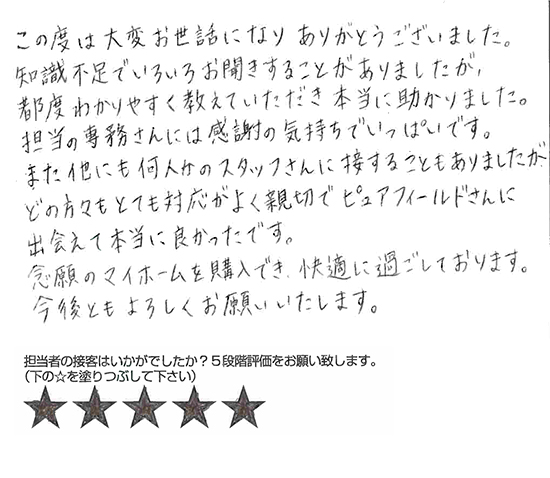 この度は大変お世話になりありがとうございました。
知識不足でいろいろお聞きすることがありましたが、
都度わかりやすく教えていただき本当に助かりました。
担当の専務さんには感謝の気持ちでいっぱいです。
また他にも何人かのスタッフさんに接することもありましたが
どの方々もとても対応がよく親切でピュアフィールドさんに
出会えて本当に良かったです。
念願のマイホームを購入でき、快適に過ごしております。
今後ともよろしくお願いいたします。
担当者の接客はいかがでしたか？５段階評価をお願い致します。
（下の☆を塗りつぶして下さい）